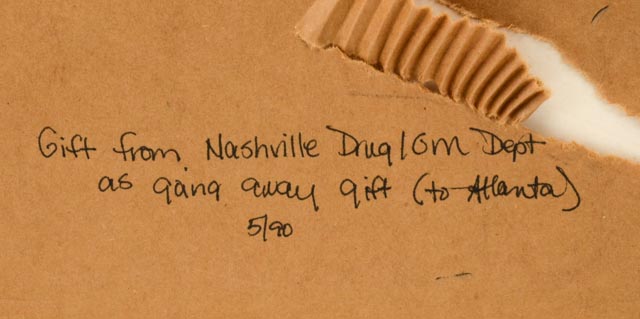 Gift from Nashville Drug/Gm Dept
as going away gift (to Atlanta)
5/90